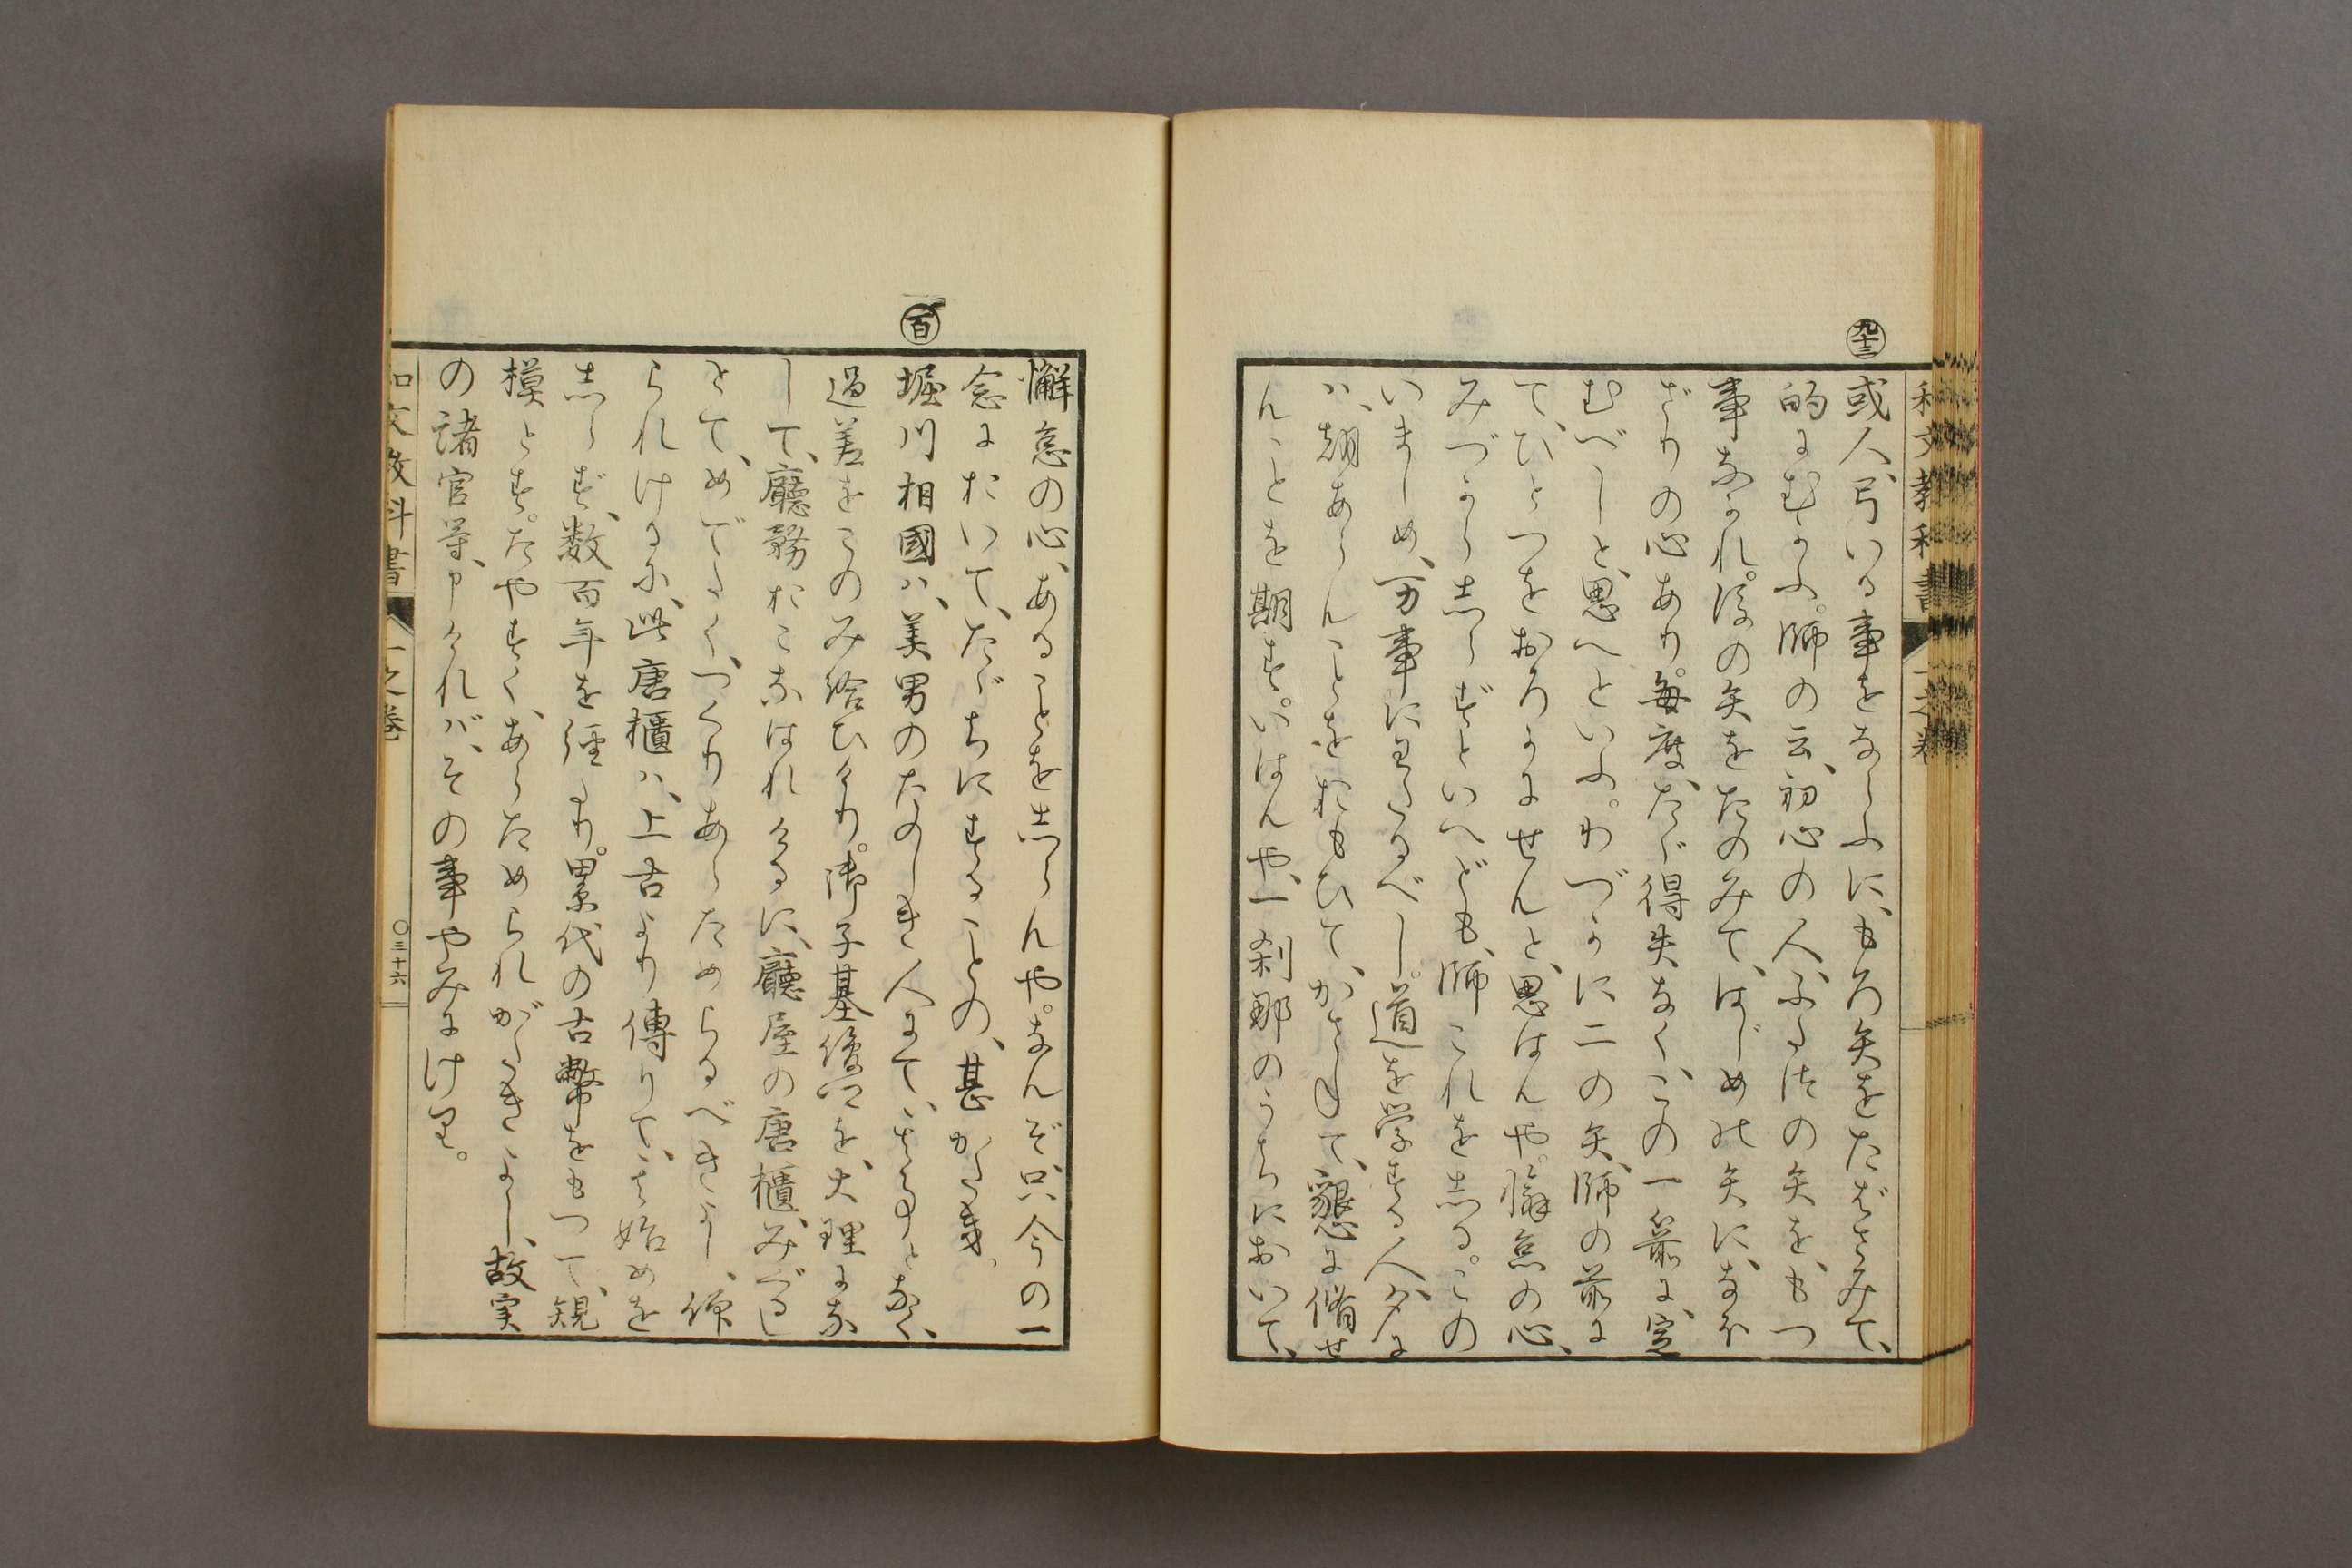 九十三
或人、弓いる事をならふに、もろ矢をたばさみて、
的にむかふ。師の云、初心の人、ふたつの矢を、もつ
事なかれ。後の矢をたのみて、はじめの矢に、なほ
ざりの心あり。毎度、たゞ得失なく、この一箭に、定
むべしと、思へといふ。わづかに二の矢、師の前に
て、ひとつをおろかにせんと、思はんや。懈怠の心、
みづからしらずといへども、師これをしる。この
いましめ、万事にわたるべし。道を学する人、夕に
ハ、朝あらんことをおもひて、かさねて、懇に脩せ
んことを期す。いはんや、一刹那のうちにおいて、
和文教科書 一之巻
懈怠の心、あることをしらんや。なんぞ、只今の一
念において、たゞちにすることの、甚かたき。
百
堀川相國ハ、美男のたのしき人にて、そのことゝなく、
過差をこのみ給ひけり。御子基俊卿を、大理にな
して、廳務おこなはれけるに、廳屋の唐櫃、みぐるし
とて、めでたく、つくりあらためらるべきよし、仰
られけるに、此唐櫃ハ、上古より傳りて、其始めを
しらず、数百年を經たり。累代の古弊をもつて、規
模とす。たやすく、あらためられがたきよし、故実
の諸官等、申ければ、その事やみにけり。
和文教科書 一之巻 〇三十六